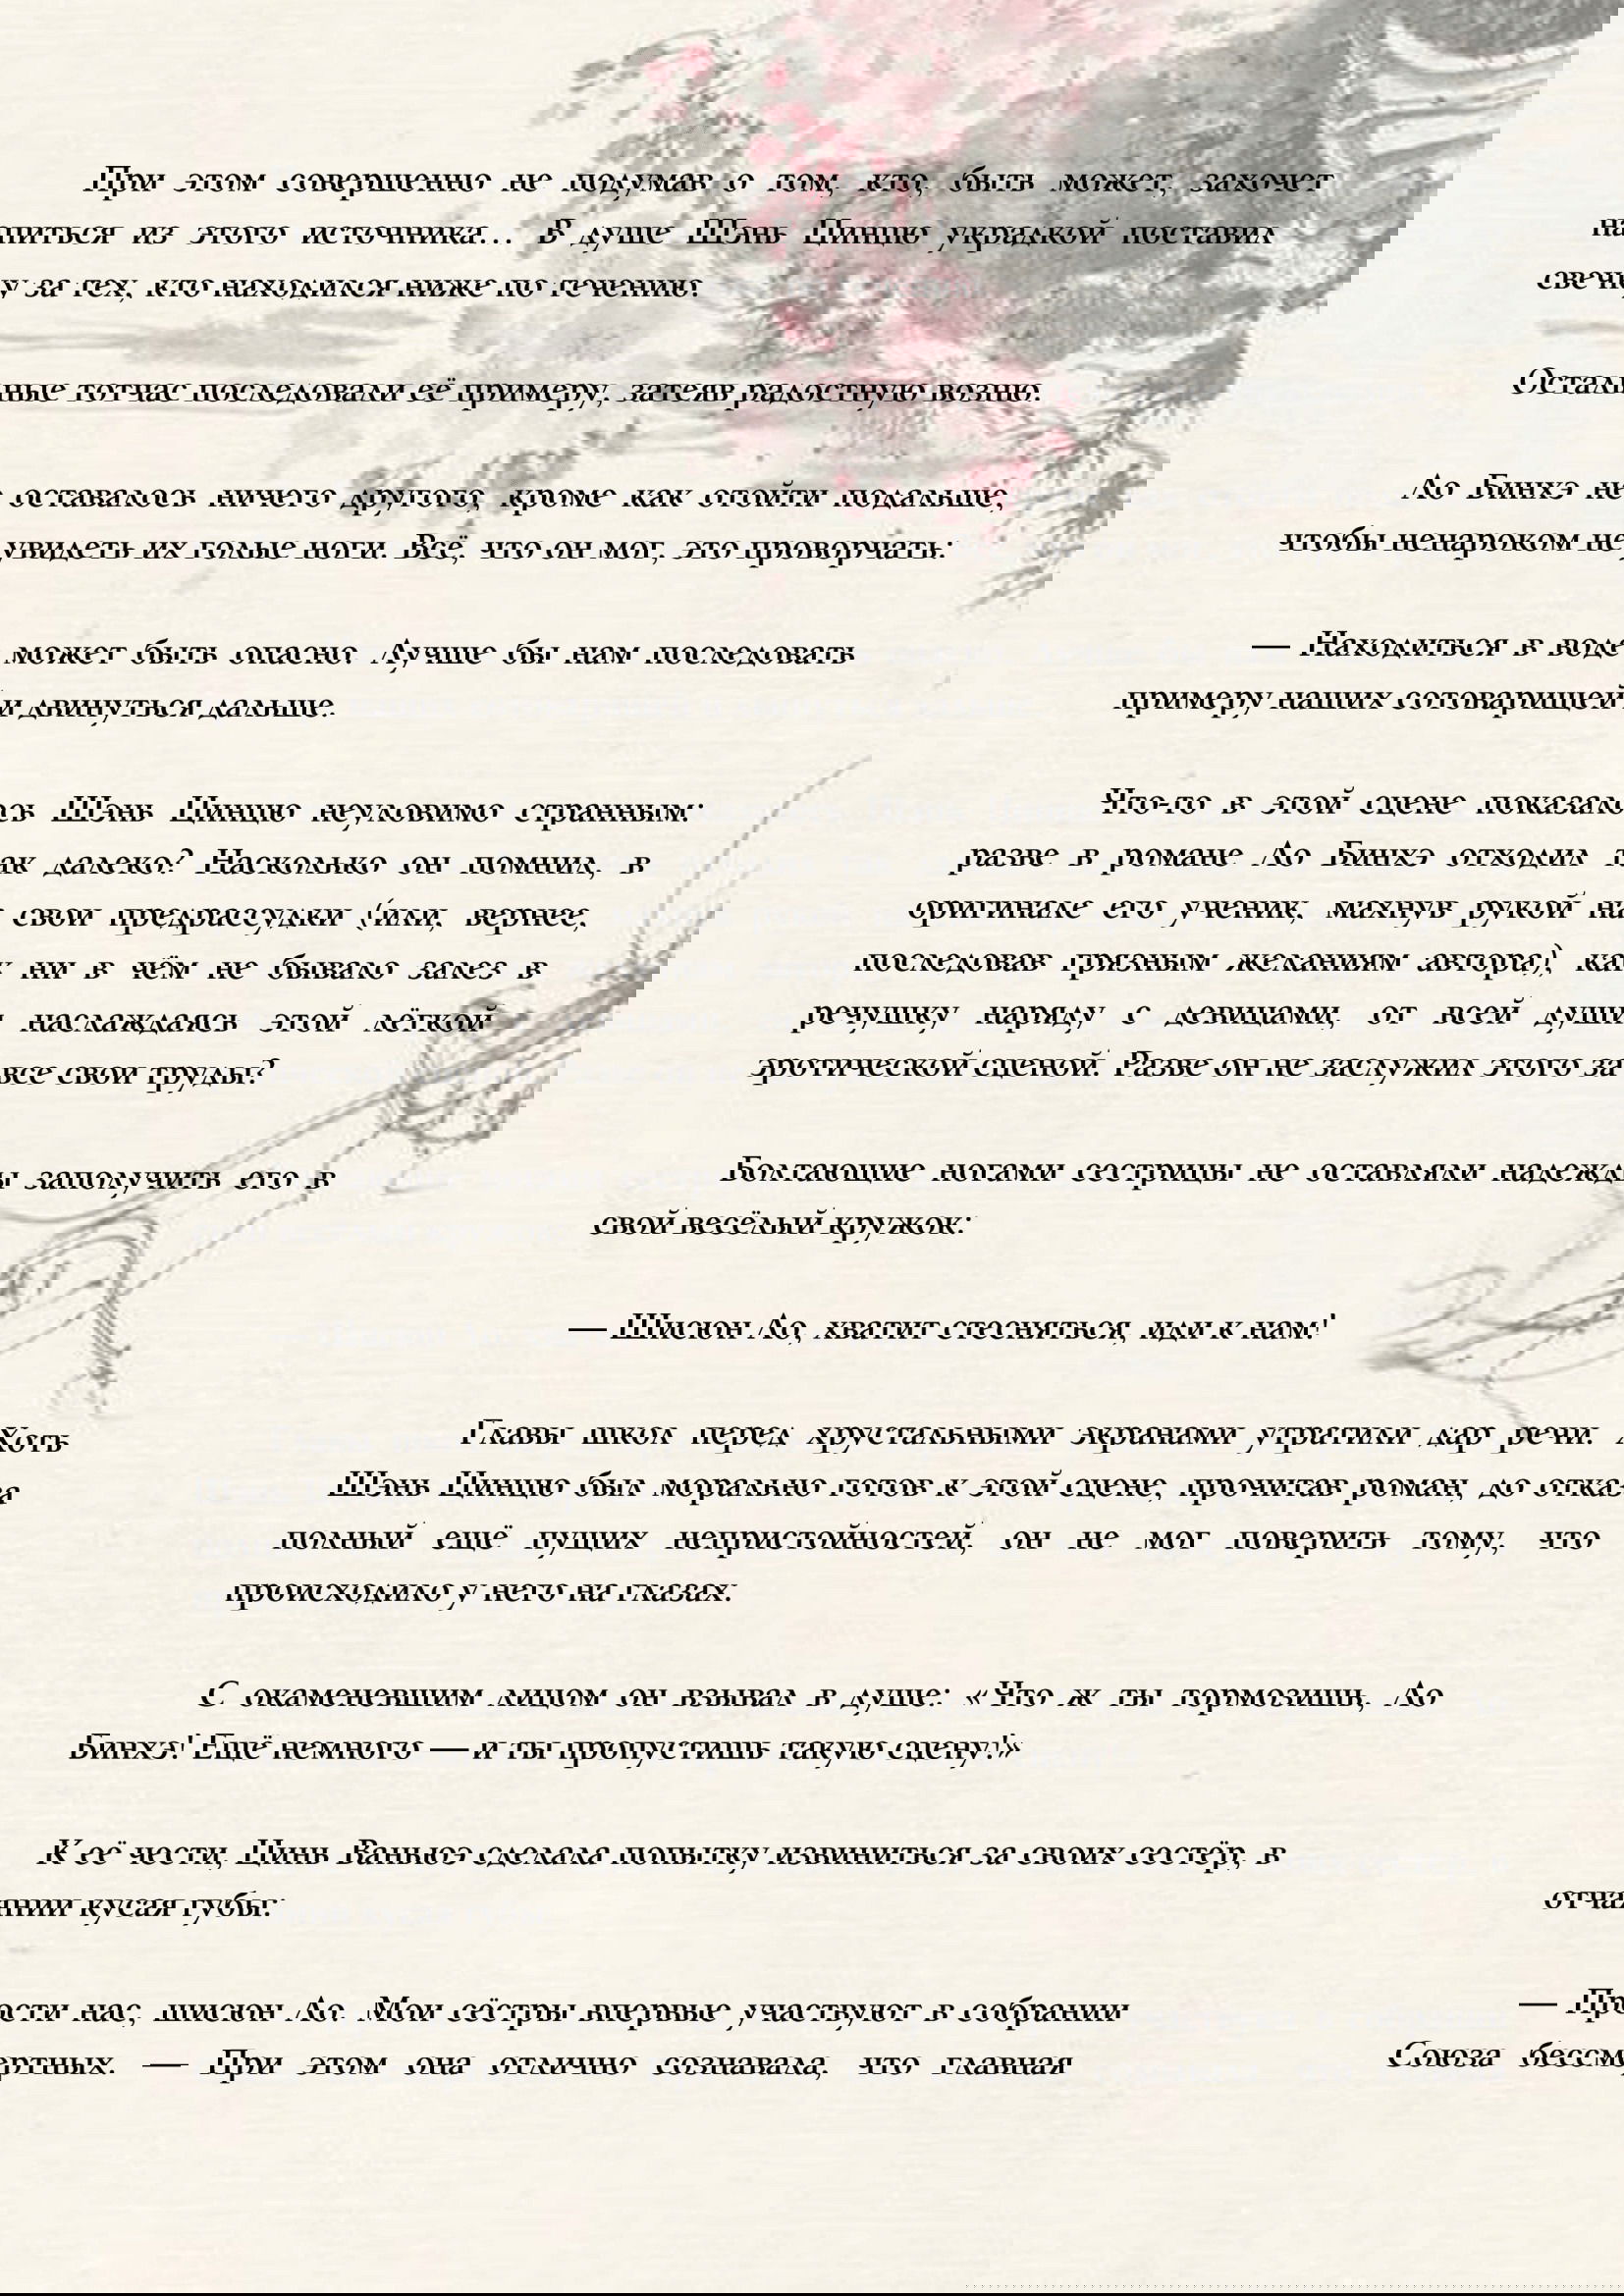 При этом совершенно не подумав о том, кто, быть может, захочет
напиться из этого источника… В душе Шэнь Цинцю украдкой поставил
свечку за тех, кто находился ниже по течению.
Остальные тотчас последовали её примеру, затеяв радостную возню.
Ло Бинхэ не оставалось ничего другого, кроме как отойти подальше,
чтобы ненароком не увидеть их голые ноги. Всё, что он мог, это проворчать:
— Находиться в воде может быть опасно. Лучше бы нам последовать
примеру наших сотоварищей и двинуться дальше.
Что-то в этой сцене показалось Шэнь Цинцю неуловимо странным:
разве в романе Ло Бинхэ отходил так далеко? Насколько он помнил, в
оригинале его ученик, махнув рукой на свои предрассудки (или, вернее,
последовав грязным желаниям автора), как ни в чём не бывало залез в
речушку наряду с девицами, от всей души наслаждаясь этой лёгкой
эротической сценой. Разве он не заслужил этого за все свои труды?
Болтающие ногами сестрицы не оставляли надежды заполучить его в
свой весёлый кружок:
— Шисюн Ло, хватит стесняться, иди к нам!
Главы школ перед хрустальными экранами утратили дар речи. Хоть
Шэнь Цинцю был морально готов к этой сцене, прочитав роман, до отказа
полный ещё пущих непристойностей, он не мог поверить тому, что
происходило у него на глазах.
С окаменевшим лицом он взывал в душе: «Что ж ты тормозишь, Ло
Бинхэ! Ещё немного — и ты пропустишь такую сцену!»
К её чести, Цинь Ваньюэ сделала попытку извиниться за своих сестёр, в
отчаянии кусая губы:
— Прости нас, шисюн Ло. Мои сёстры впервые участвуют в собрании
Союза бессмертных. — При этом она отлично сознавала, что главная